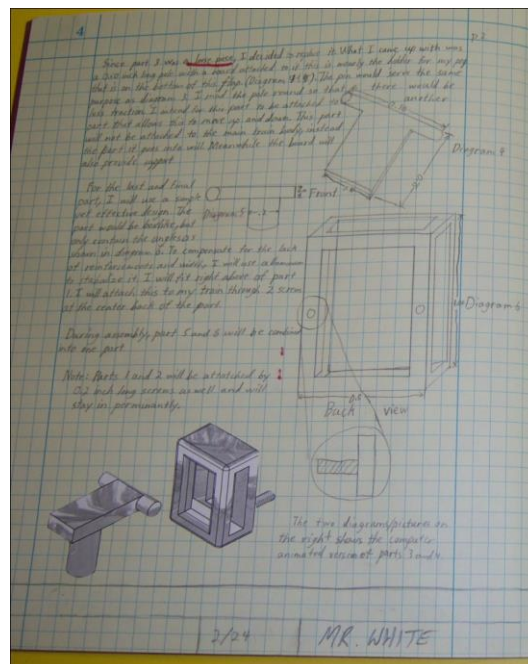 4
p.2
Since part 3 was a large piece, I decided to replace it. What I came up with was
a 3.0 inch long pole with a board attached to it. This is mainly the holder for my
that is on the bottom of this flap (Diagram 4&5). The pin would serve the same
purpose as diagram 3. I made the pole round so that there would be
less friction. I intend for this part to be attached to another
part that allows this to move up and down. This part
will not be attached to the main train body, instead
the part it goes into will. Meanwhile the board will
also provide support.
Diagram 4
For the last and final
part, I will use a simple
yet effective design. The
part would be but
only contain the angles as
shown in diagram 6. To compensate for the lack
of reinforcements and I will use aluminum
to stabilize it. I will fit right above of part
1. I will attach this to my train through 2 screws
at the centre back of the part.
Front
Diagram 5
Diagram 6
During assembly, part 5 and 6 will be combined
into one part.
Note: Parts 1 and 2 will be attatched by
0.2 inch long screws as well and will
stay in perminantly.
Back view
The two diagrams/pictures on
the right shows the computer
animated version of parts 3 and 4.
2/24
MR. WHITE